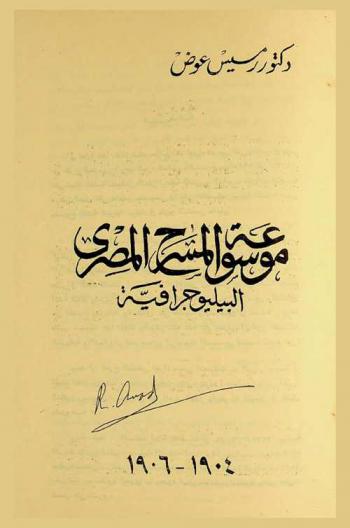 دكتور رمسيس عوض
موسوعة المسرح المصرى
الببليوجرافية
R. Awad
١٩٠٤ - ١٩٠٦